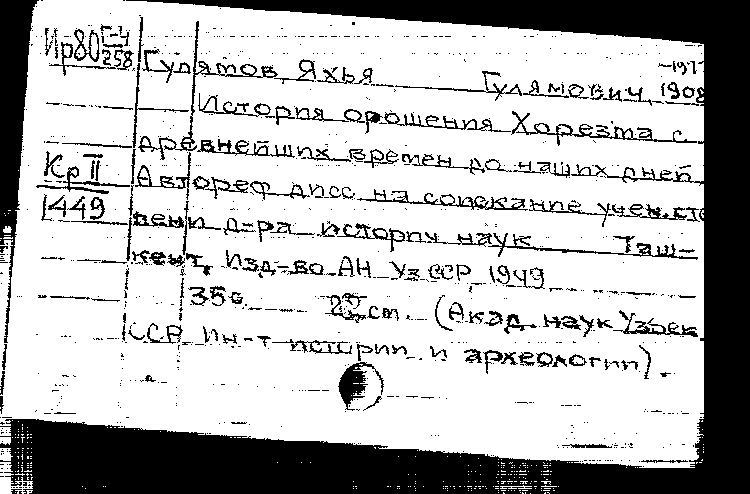 Ир80 Г-4/258
Гулямов, Яхья Гулямович, 1908
-197
История орошения Хорезма с
древнейших времен до наших дней.
Кр II
1449
Автореф дисс на соискание учен. сте
пени д-ра историч наук Таш-
кент, Изд-во АН УзССР, 1949
35 с. см. (Акад. наук Узбек
ССР Ин-т истории и археологии).